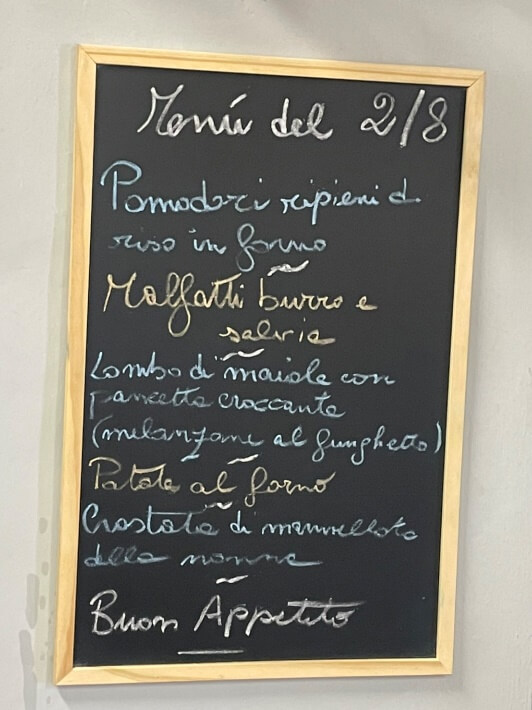 Menú del 2/8
Pomodori ripieni di
riso in forno
Malfatti burro e
salvia
Lombo di maiale con
pancetta croccante
(melanzane al funghetto)
Patate al forno
Crostata di marmellata
della nonna
Buon Appetito